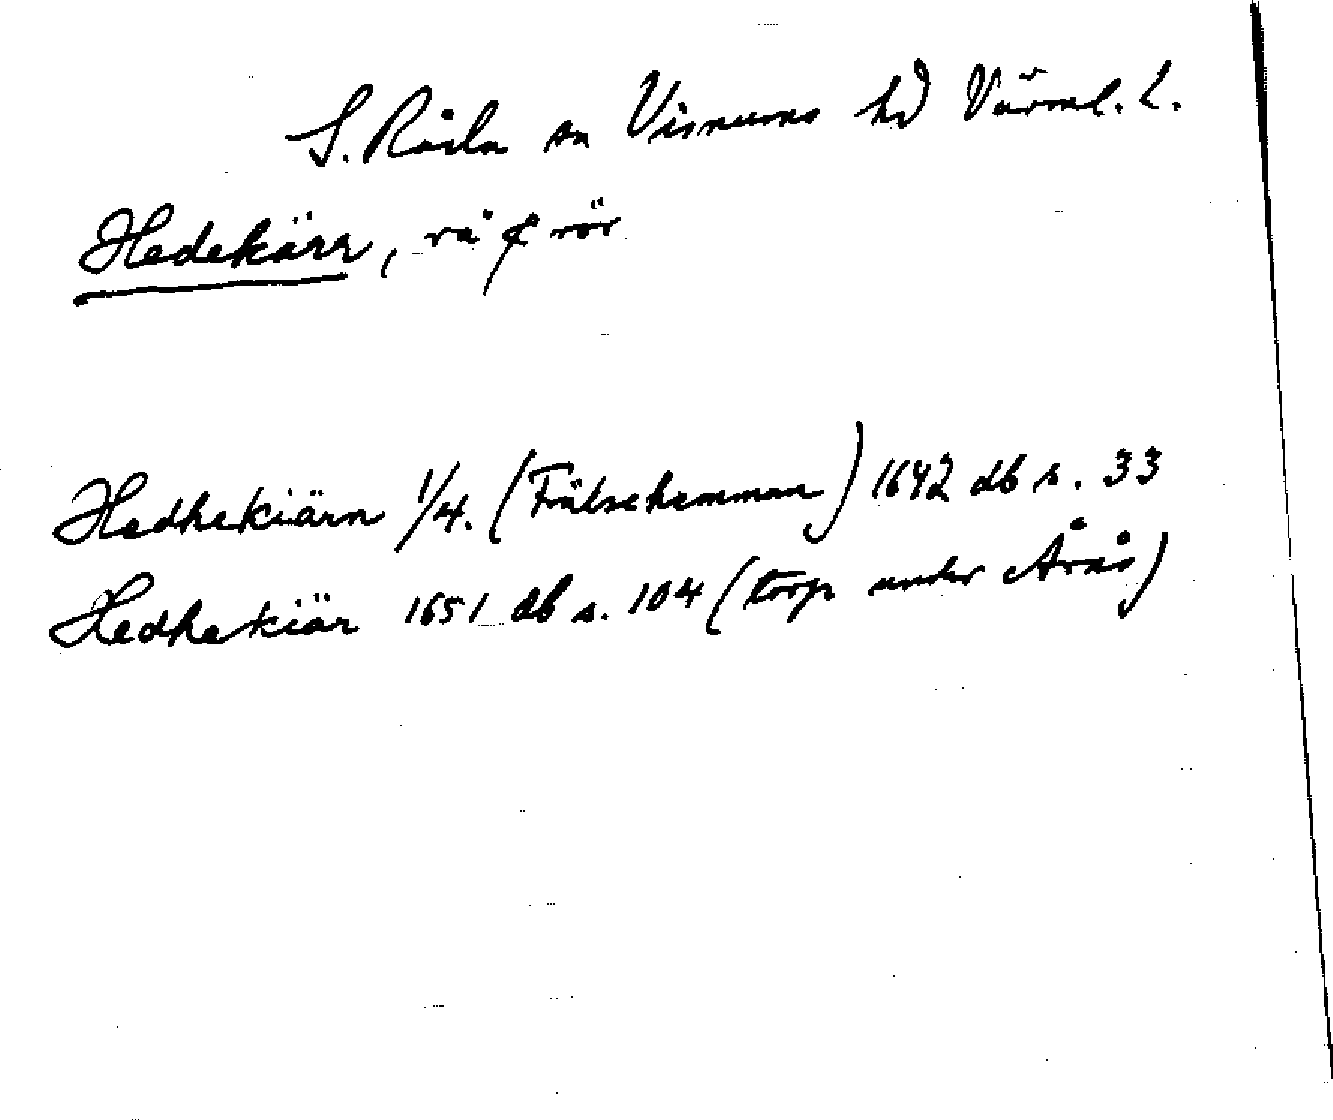 S. Råda sn Visnums hd Värml. l.
Hedekärr, rå & rör
Hedhekiärn 1/4. (Frälsehemman) 1642 db s. 33
Hedhekiär 1651 db s. 104 (torp under Årås)